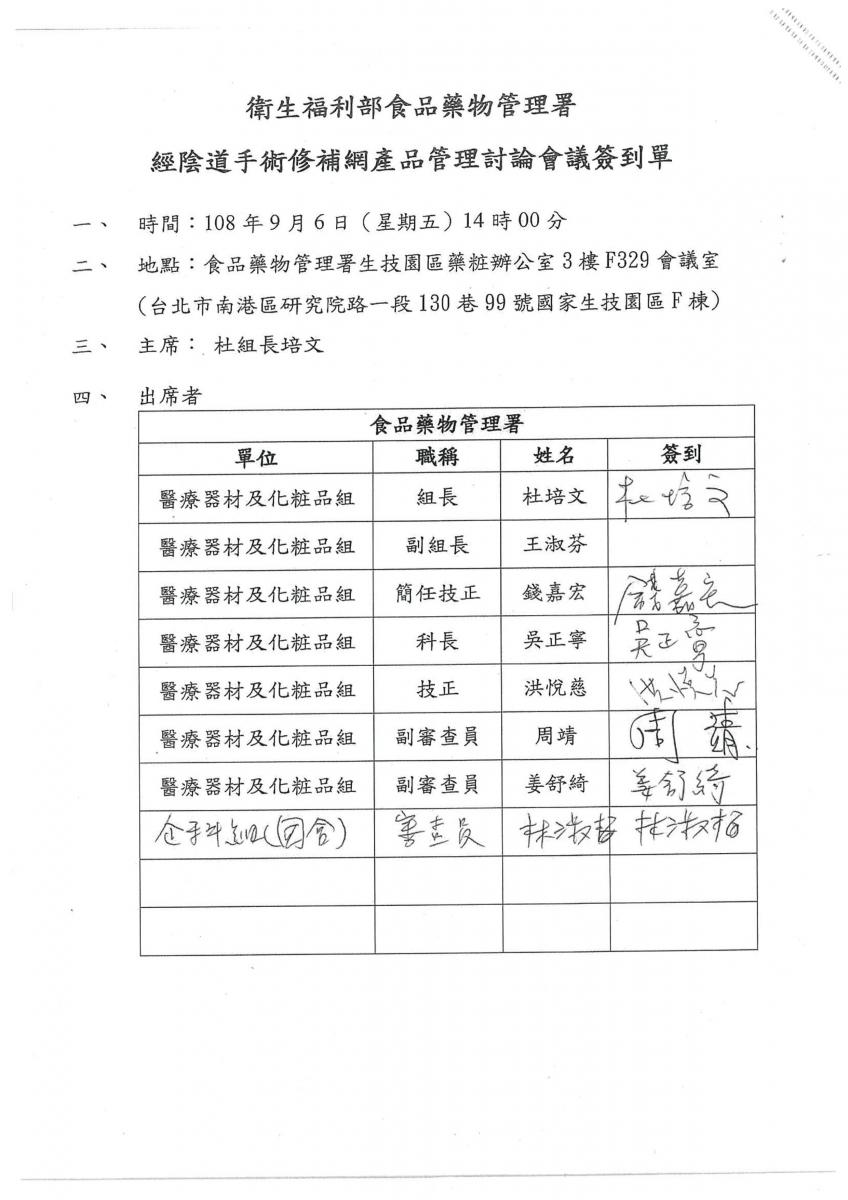 衛生福利部食品藥物管理署
經陰道手術修補網產品管理討論會議簽到單
一、 時間：108 年 9 月 6 日（星期五）14 時 00 分
二、 地點：食品藥物管理署生技園區藥粧辦公室 3 樓 F329 會議室
(台北市南港區研究院路一段 130 巷 99 號國家生技園區 F 棟)
三、 主席： 杜組長培文
四、 出席者
食品藥物管理署
單位 職稱 姓名 簽到
醫療器材及化粧品組 組長 杜培文 杜培文
醫療器材及化粧品組 副組長 王淑芬
醫療器材及化粧品組 簡任技正 錢嘉宏 錢嘉宏
醫療器材及化粧品組 科長 吳正寧 吳正寧
醫療器材及化粧品組 技正 洪悅慈 洪悅慈
醫療器材及化粧品組 副審查員 周靖 周靖
醫療器材及化粧品組 副審查員 姜舒綺 姜舒綺
審查員 林淑 林淑